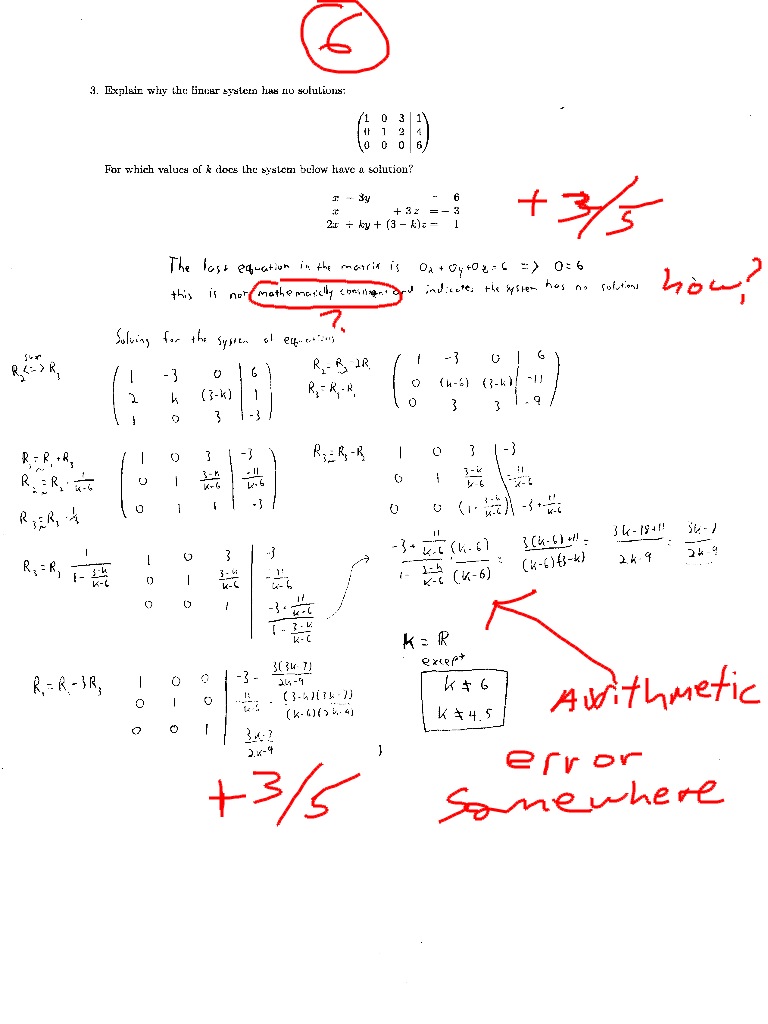 6
3. Explain why the linear system has no solutions:
1 0 3 | 1
0 1 2 | 4
0 0 0 | 6
For which values of k does the system below have a solution?
x - 3y = 6
x + 3z = - 3
2x + ky + (3 - k)z = 1
+3/5
The last equation in the matrix is 0x + 0y + 0z = 6 => 0 = 6
this is not mathematically and indicates the system has no solutions
how?
?
Solving for the system of equations
R2 <-> R3
1 -3 0 | 6
2 k (3-k) | 1
1 0 3 | -3
R2 = R2 - 2R1
R3 = R3 - R1
1 -3 0 | 6
0 (k-6) (3-k) | -11
0 3 3 | -9
R1 = R1 + R3
R2 = R2 · 1/k-6
R3 = R3 · 1/3
1 0 3 | -3
0 1 3-k/k-6 | -11/k-6
0 1 1 | -3
R3 = R3 - R2
1 0 3 | -3
0 1 3-k/k-6 | -11/k-6
0 0 (1 - 3-k/k-6) | -3 + 11/k-6
R3 = R3 1/1 - 3-k/k-6
1 0 3 | -3
0 1 3-k/k-6 | -11/k-6
0 0 1 | -3 + 11/k-6 / 1 - 3-k/k-6
-3 + 11/k-6 (k-6) / 1 - 3-k/k-6 (k-6) = 3(k-6)+11 / (k-6)(3-k) = 3k-18+11 / 2k-9 = 3k-7 / 2k-9
k = ℝ
except
k ≠ 6
k ≠ 4.5
R1 = R1 - 3R3
1 0 0 | -3 - 3(3k-7)/2k-9
0 1 0 | 11/k-6 - (3-k)(3k-7)/(k-6)(2k-9)
0 0 1 | 3k-7/2k-9
Arithmetic
error
somewhere
+3/5